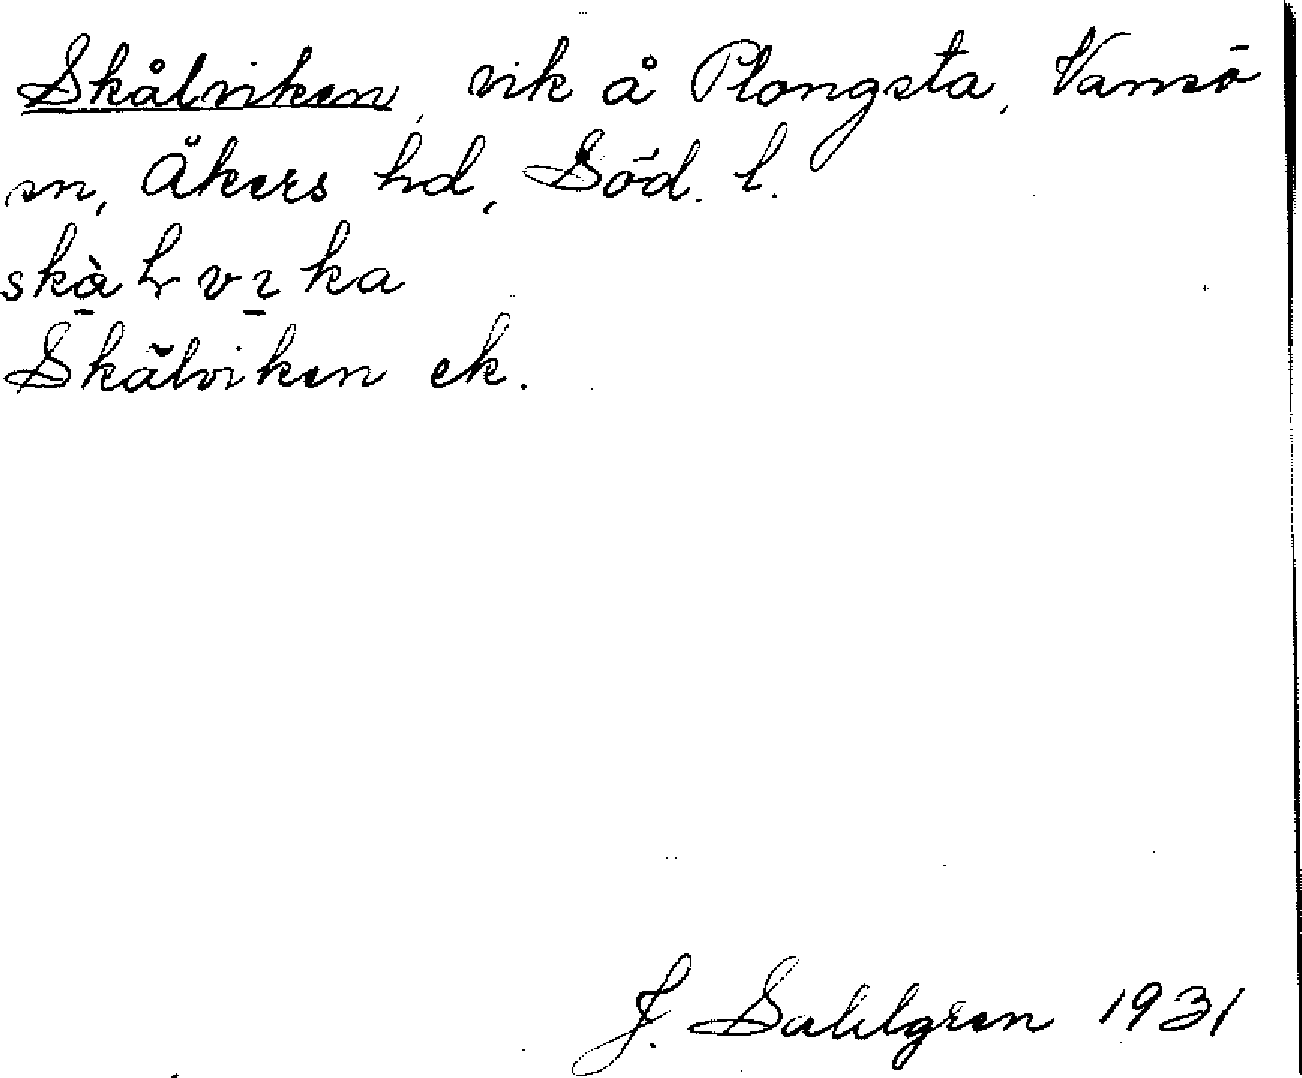 Skålviken, vik å Plongsta, Vansö
sn, Åkers hd, Söd. l.
Skålviken ek.
J. Sahlgren 1931